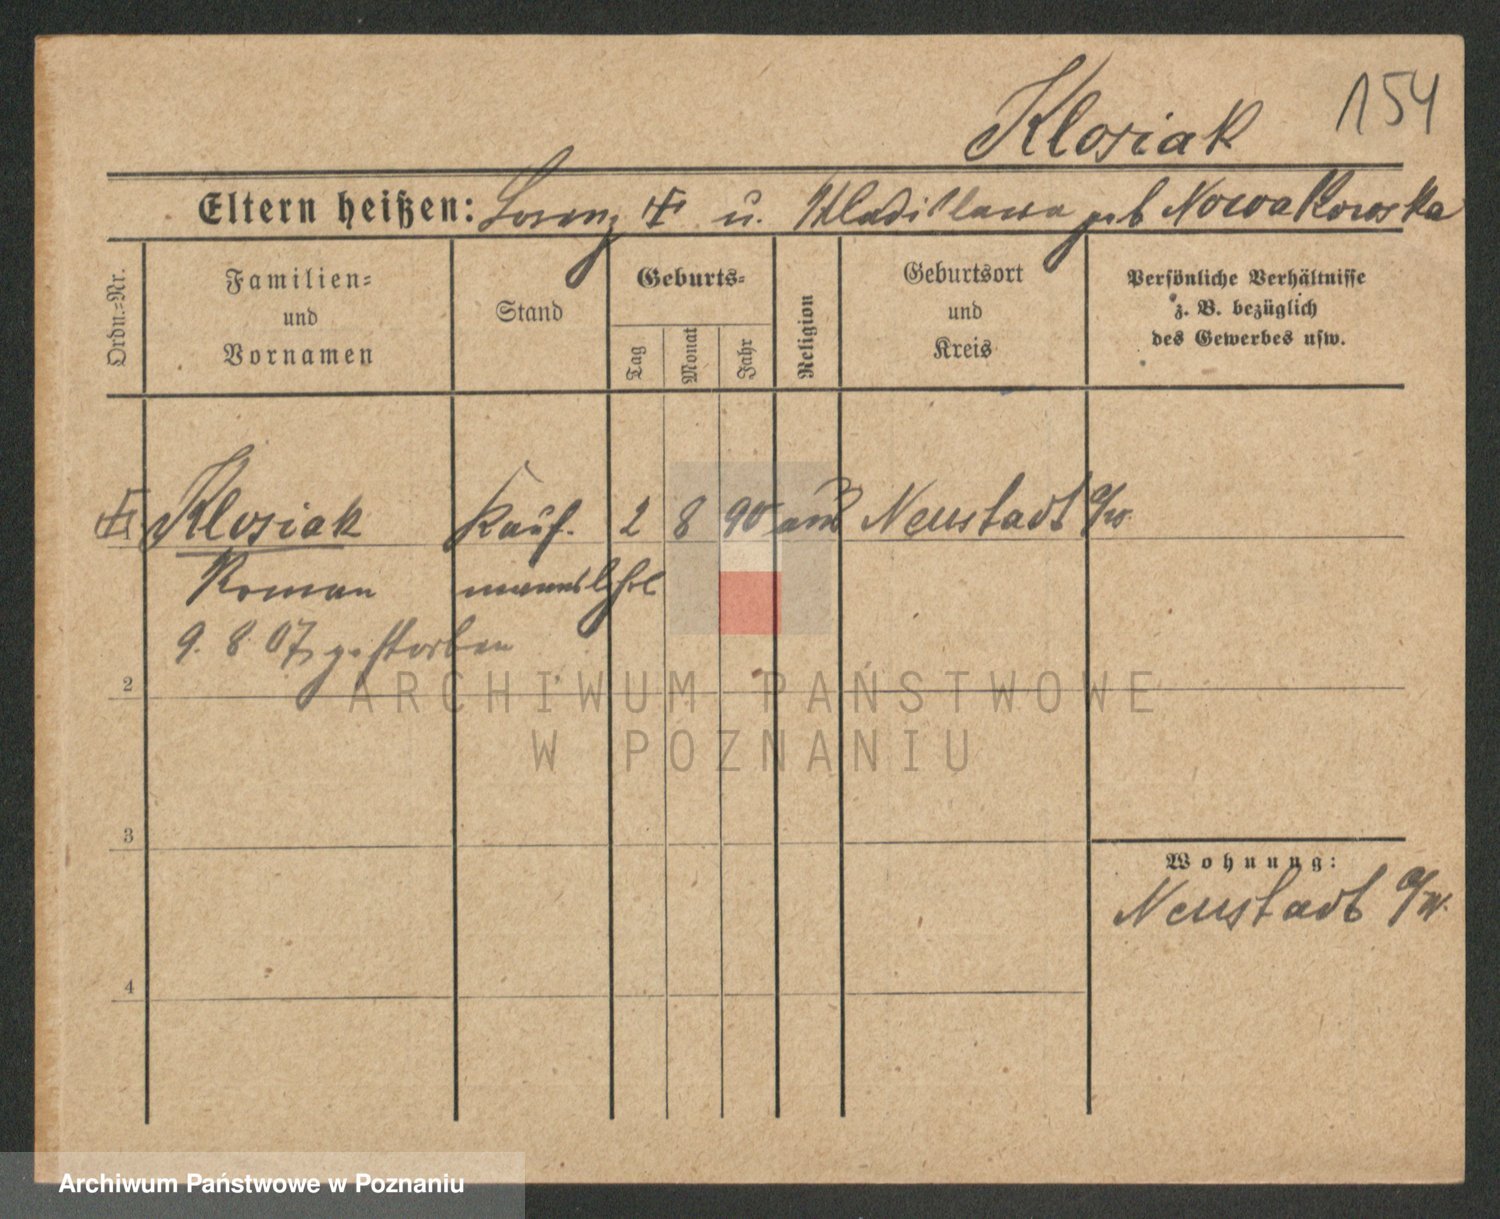 154
Klosiak
Eltern heißen: Lorenz u. Wladislawa geb Nowakowska
Ordn.=Nr.
Familien=
und
Vornamen
Stand
Geburts=
Tag
Monat
Jahr
Religion
Geburtsort
und
Kreis
Persönliche Verhältnisse
z. B. bezüglich
des Gewerbes usw.
Klosiak Kauf. 2 8 90 Neustadt a/w.
Roman mannslehrl
9. 8 07 gestorben
2
3
4
Wohnung:
Neustadt a/W.
ARCHIWUM PAŃSTWOWE
W POZNANIU
Archiwum Państwowe w Poznaniu